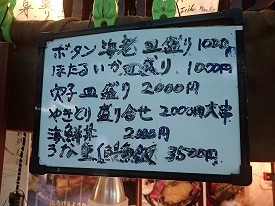 ボタン海老皿盛り1000円
ほたるいか皿盛り 1000円
穴子皿盛り 2000円
やきとり盛り合せ 2000円 大串
海鮮丼 2000円
うな重 3500円